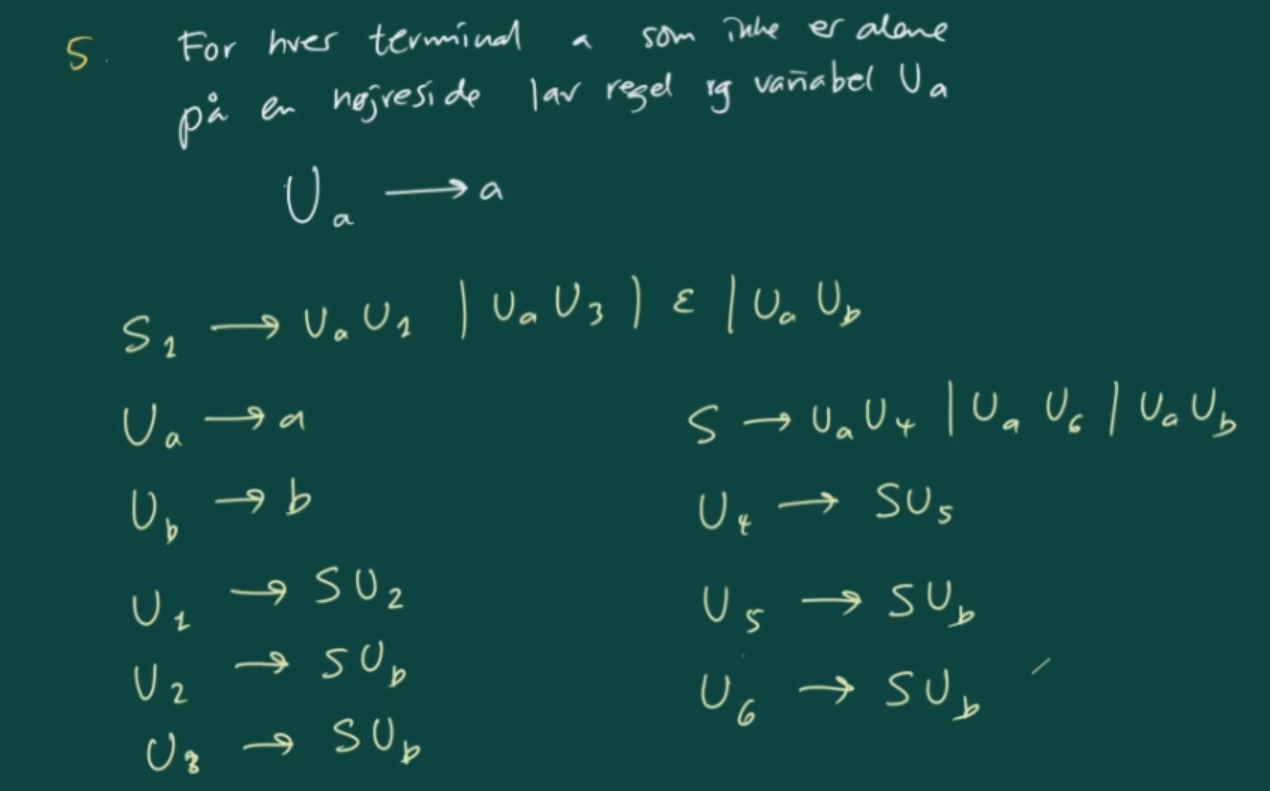 5. For hver terminal a som ikke er alene
på en højreside lav regel og variabel U_a
U_a → a
S_1 → U_a U_1 | U_a U_3 | ε | U_a U_b
U_a → a
S → U_a U_4 | U_a U_6 | U_a U_b
U_b → b
U_4 → SU_5
U_1 → SU_2
U_5 → SU_b
U_2 → SU_b
U_6 → SU_b
U_3 → SU_b